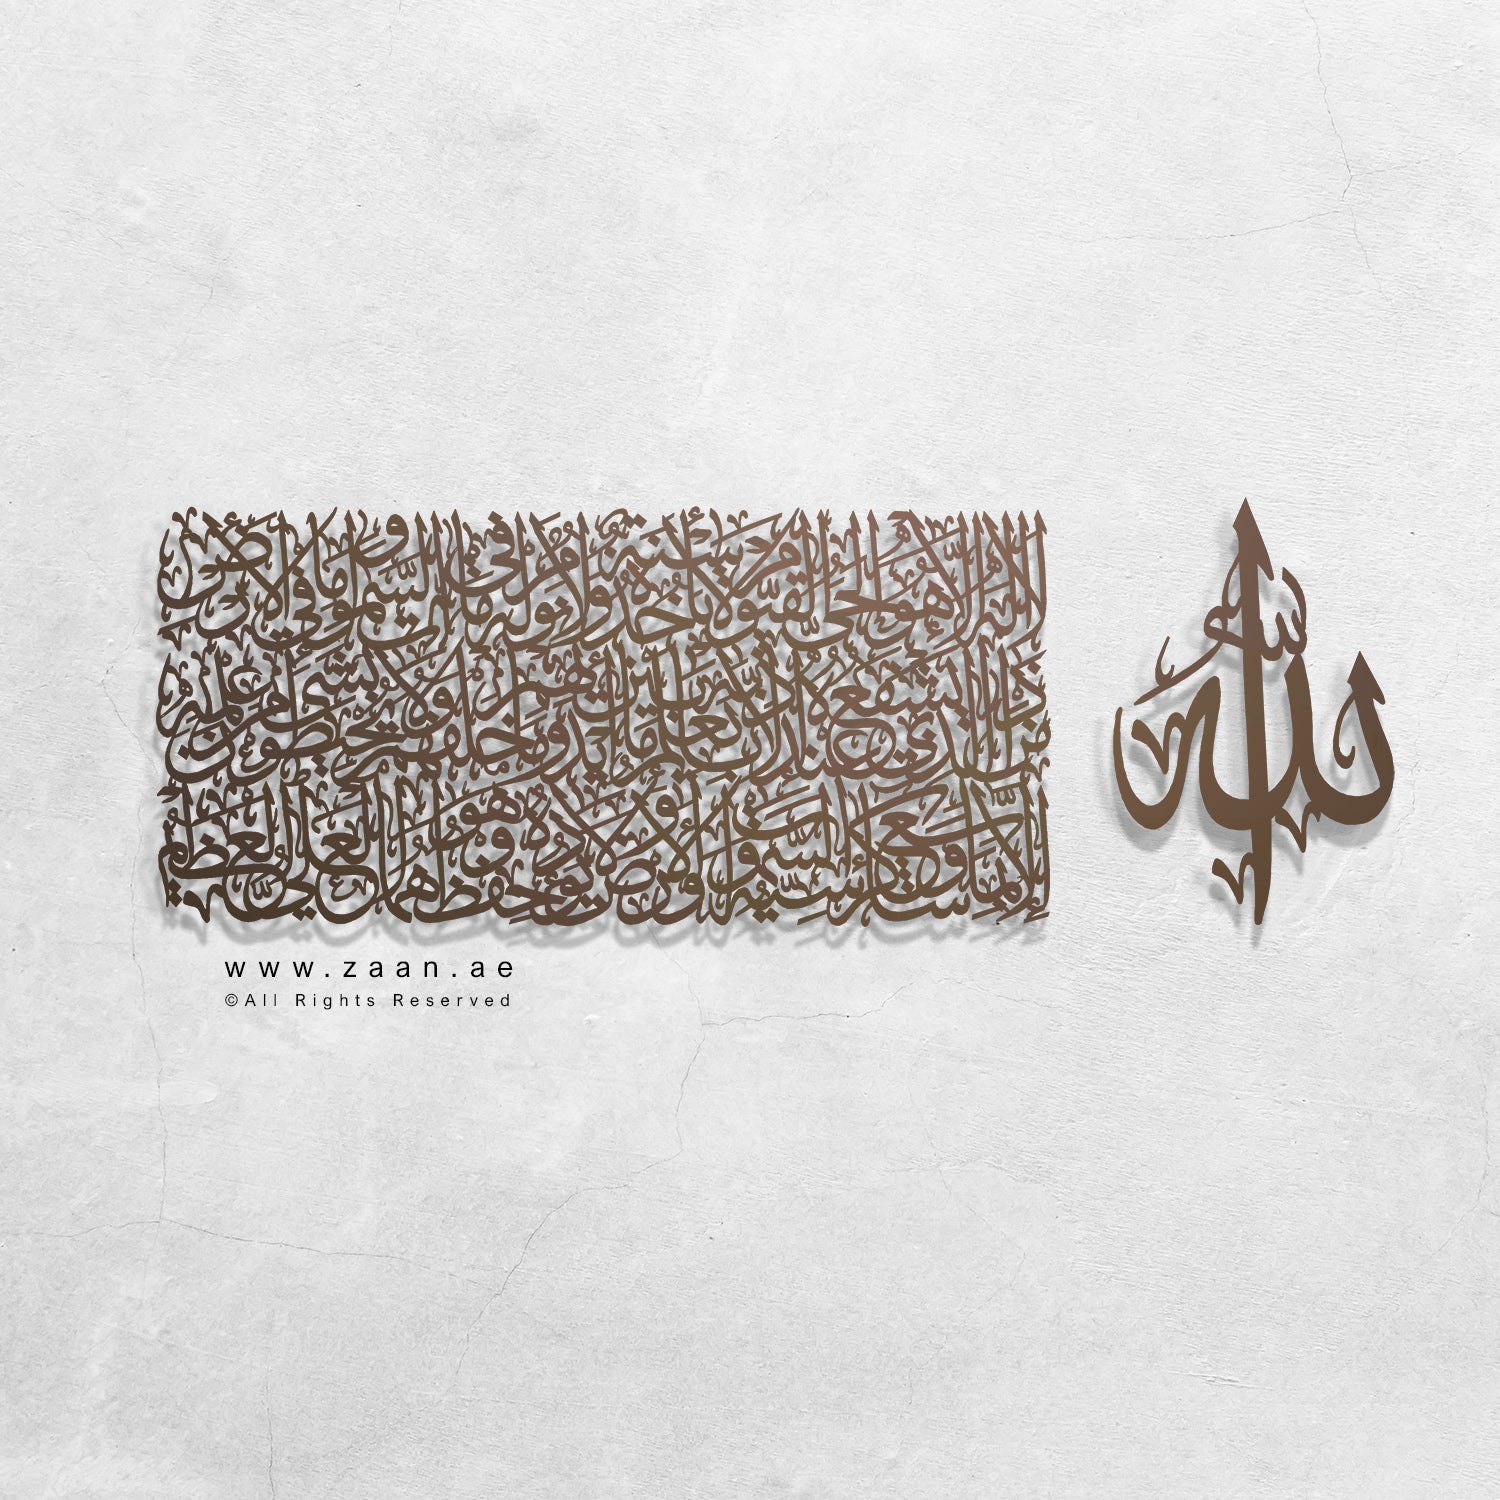 الله لا إله إلا هو الحي القيوم لا تأخذه سنة ولا نوم له ما في السموات وما في الأرض
من ذا الذي يشفع عنده إلا بإذنه يعلم ما بين أيديهم وما خلفهم ولا يحيطون بشيء من علمه
إلا بما شاء وسع كرسيه السموات والأرض ولا يؤوده حفظهما وهو العلي العظيم
www.zaan.ae
©All Rights Reserved